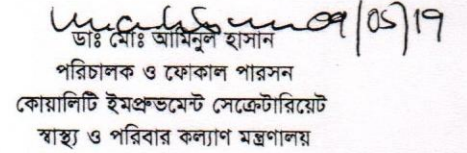 09/05/19
ডাঃ মোঃ আমিনুল হাসান
পরিচালক ও ফোকাল পারসন
কোয়ালিটি ইমপ্রুভমেন্ট সেক্রেটারিয়েট
স্বাস্থ্য ও পরিবার কল্যাণ মন্ত্রণালয়